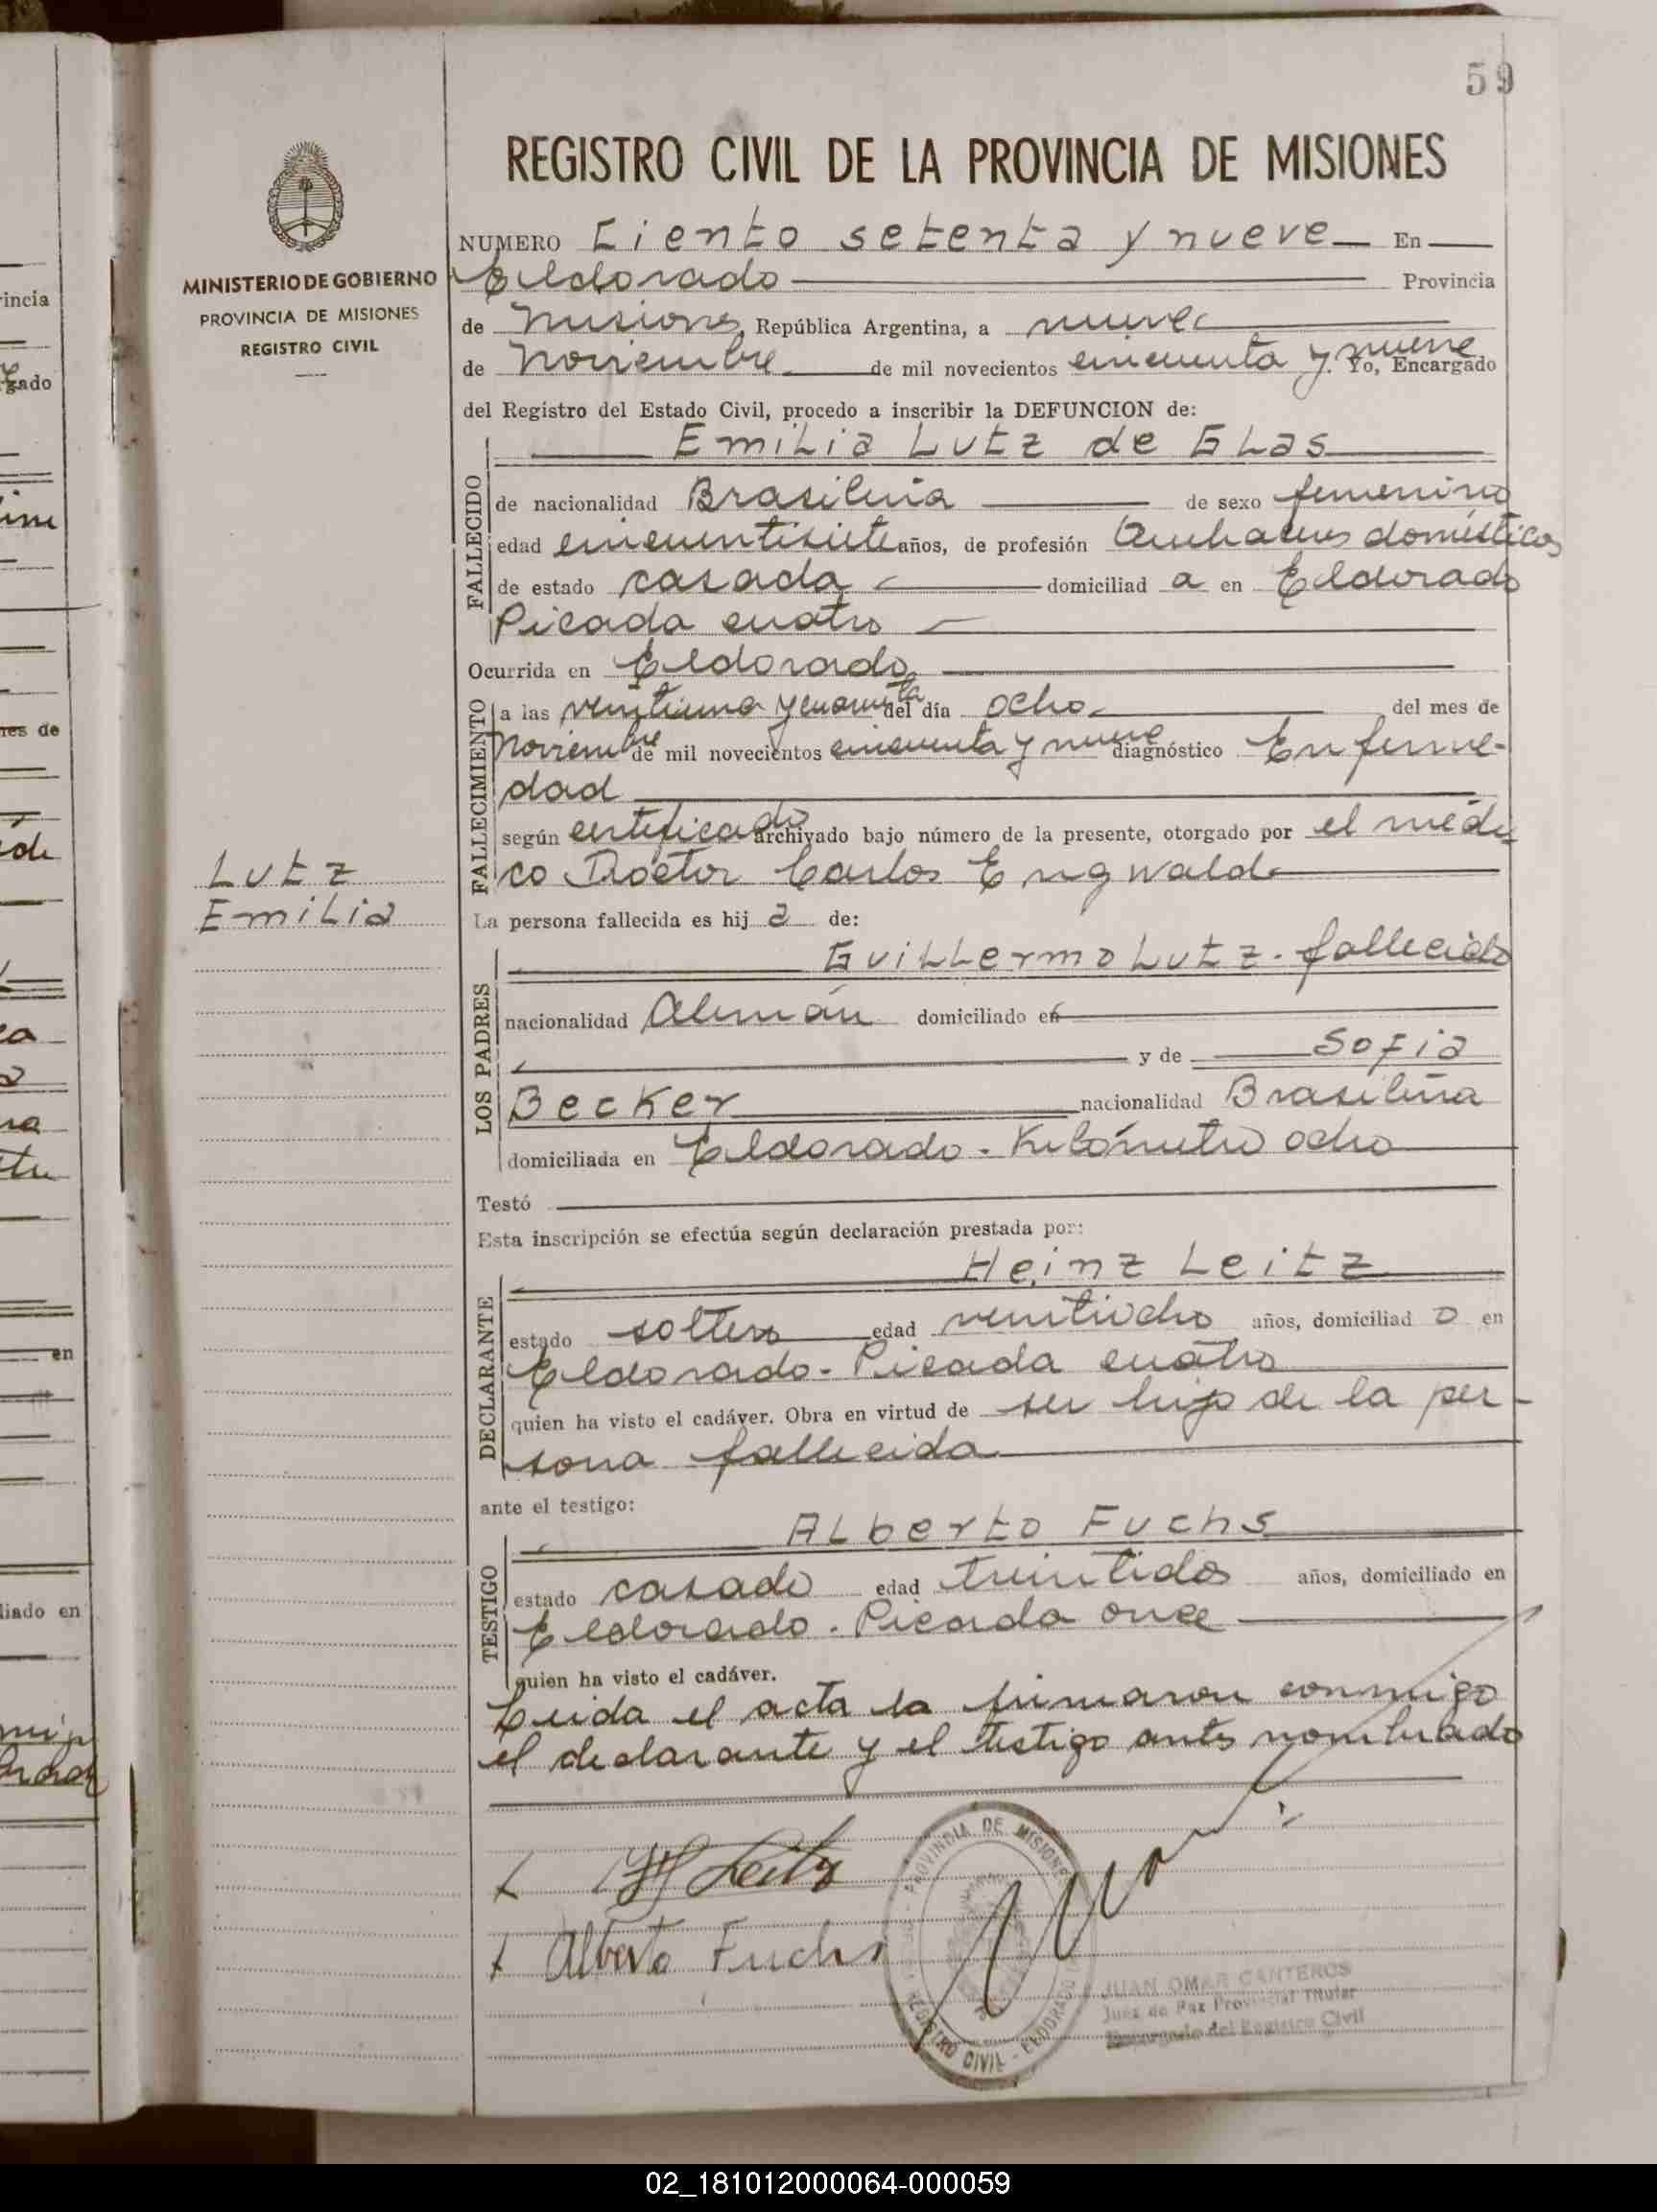 59
REGISTRO CIVIL DE LA PROVINCIA DE MISIONES
MINISTERIO DE GOBIERNO
PROVINCIA DE MISIONES
REGISTRO CIVIL
NUMERO Ciento setenta y nueve En
Eldorado Provincia
de Misiones, República Argentina, a nueve
de Noviembre de mil novecientos cincuenta y nueve. Yo, Encargado
del Registro del Estado Civil, procedo a inscribir la DEFUNCION de:
Emilia Lutz de Glas
FALLECIDO
de nacionalidad Brasileña de sexo femenino
edad cincuentisiete años, de profesión Quehaceres domésticos
de estado casada domiciliad a en Eldorado
Picada cuatro
Ocurrida en Eldorado
FALLECIMIENTO
a las veintiuna y cuarenta del día ocho del mes de
Noviembre de mil novecientos cincuenta y nueve diagnóstico Enferme-
dad
según certificado archivado bajo número de la presente, otorgado por el médi
co Doctor Carlos Engwald
Lutz
Emilia
La persona fallecida es hij a de:
LOS PADRES
Guillermo Lutz - fallecido
nacionalidad Alemán domiciliado en
y de Sofia
Becker nacionalidad Brasileña
domiciliada en Eldorado - Kilómetro ocho
Testó
Esta inscripción se efectúa según declaración prestada por:
DECLARANTE
Heinz Leitz
estado soltero edad veintiocho años, domiciliad o en
Eldorado - Picada cuatro
quien ha visto el cadáver. Obra en virtud de ser hijo de la per-
sona fallecida
ante el testigo:
TESTIGO
Alberto Fuchs
estado casado edad treintidos años, domiciliado en
Eldorado - Picada once
quien ha visto el cadáver.
Leida el acta la firmaron conmigo
el declarante y el testigo antes nombrado
H Leitz
Alberto Fuchs
PROVINCIA DE MISIONES
REGISTRO CIVIL - ELDORADO
JUAN OMAR CANTEROS
Juez de Paz Provincial Titular
Encargado del Registro Civil
02_181012000064-000059